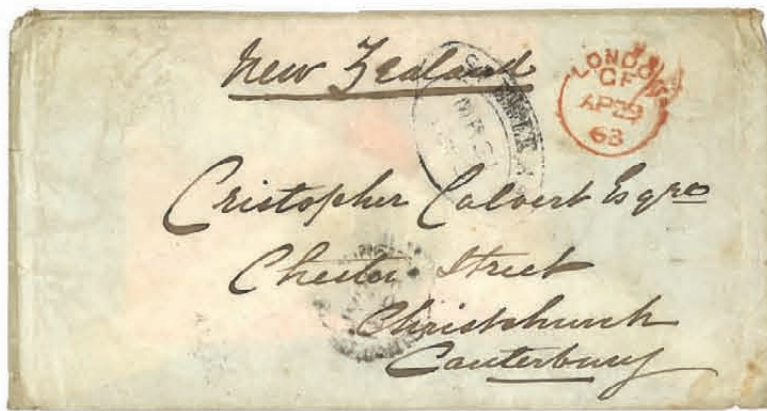 New Zealand
LONDON
CF
AP 29
63
Cristopher Calvert Esqre
Chester Street
Christchurch
Canterbury